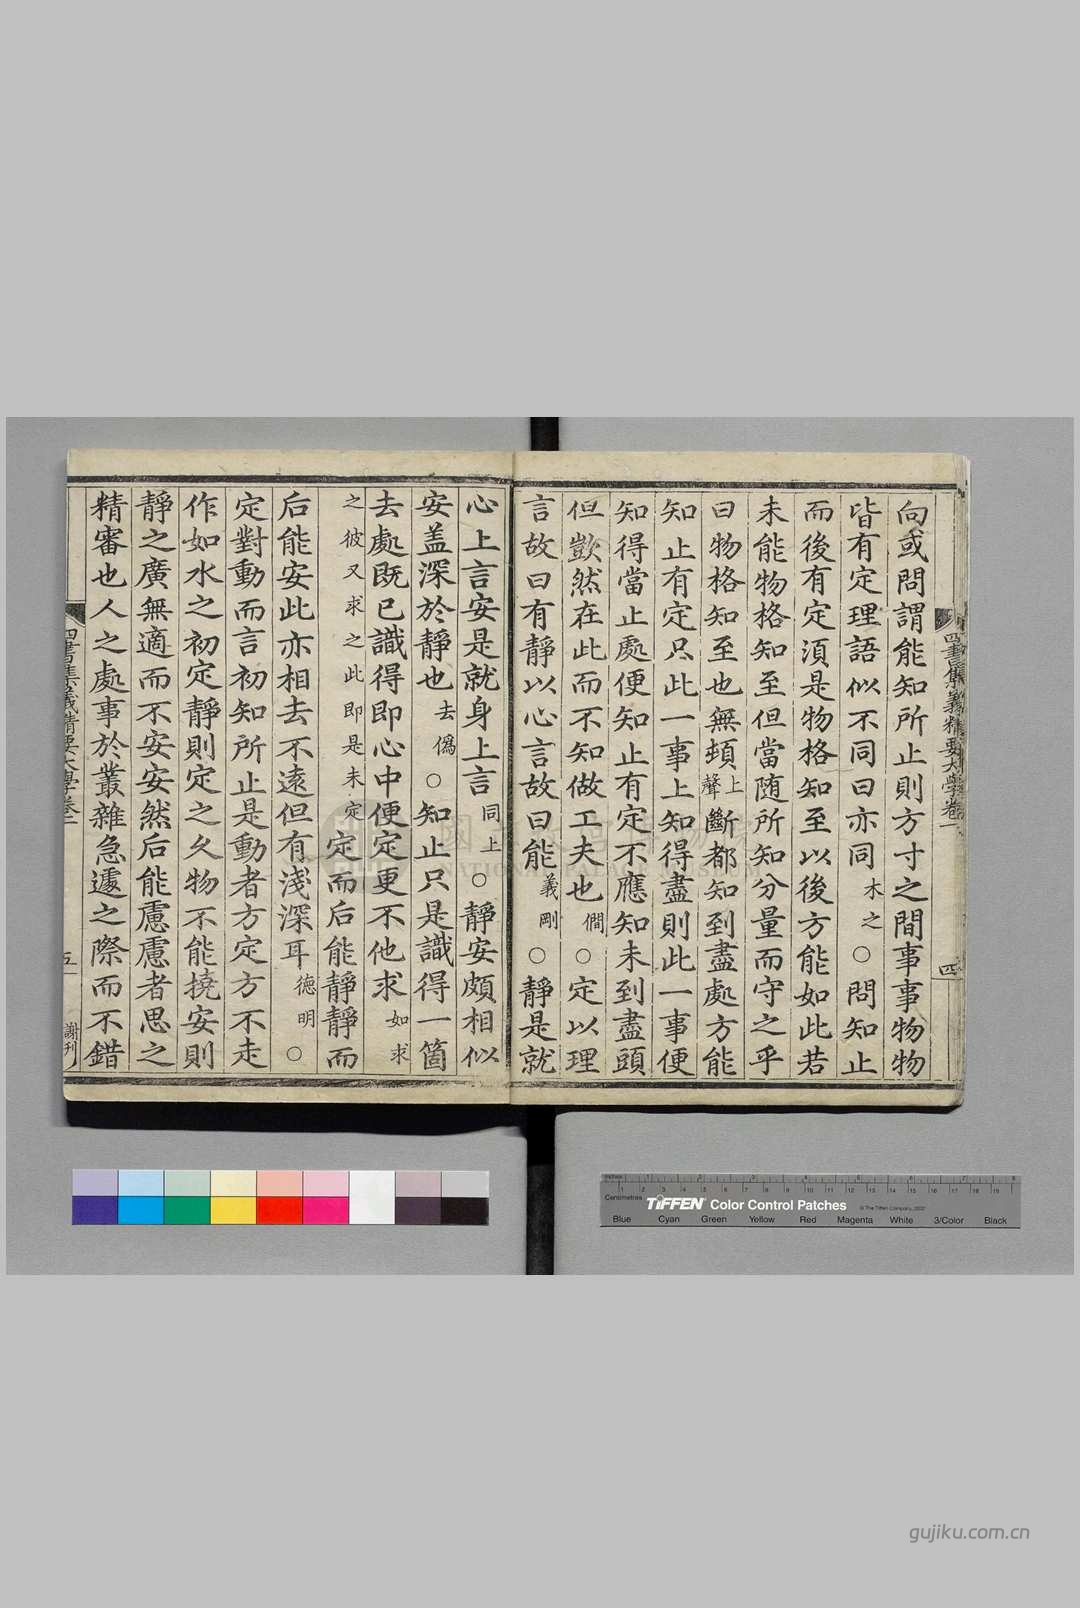 向或問謂能知所止則方寸之間事事物物
皆有定理語似不同曰亦同木之○問知止
而後有定須是物格知至以後方能如此若
未能物格知至但當随所知分量而守之乎
曰物格知至也無頓上聲斷都知到盡處方能
知止有定只此一事上知得盡則此一事便
知得當止處便知止有定不應知未到盡頭
但歘然在此而不知做工夫也僩○定以理
言故曰有靜以心言故曰能義剛○靜是就
四書集義精要大學卷一
四
心上言安是就身上言同上○靜安頗相似
安盖深於靜也去僞○知止只是識得一箇
去處既已識得即心中便定更不他求如求
之彼又求之此即是未定定而后能靜靜而
后能安此亦相去不遠但有淺深耳德明○
定對動而言初知所止是動者方定方不走
作如水之初定靜則定之久物不能撓安則
靜之廣無適而不安安然后能慮慮者思之
精審也人之處事於叢雜急遽之際而不錯
四書集義精要大學卷一
五
謝刊
NATIONAL PALACE MUSEUM
inches
Centimetres
TIFFEN Color Control Patches
© The Tiffen Company, 2007
Blue Cyan Green Yellow Red Magenta White 3/Color Black
gujiku.com.cn